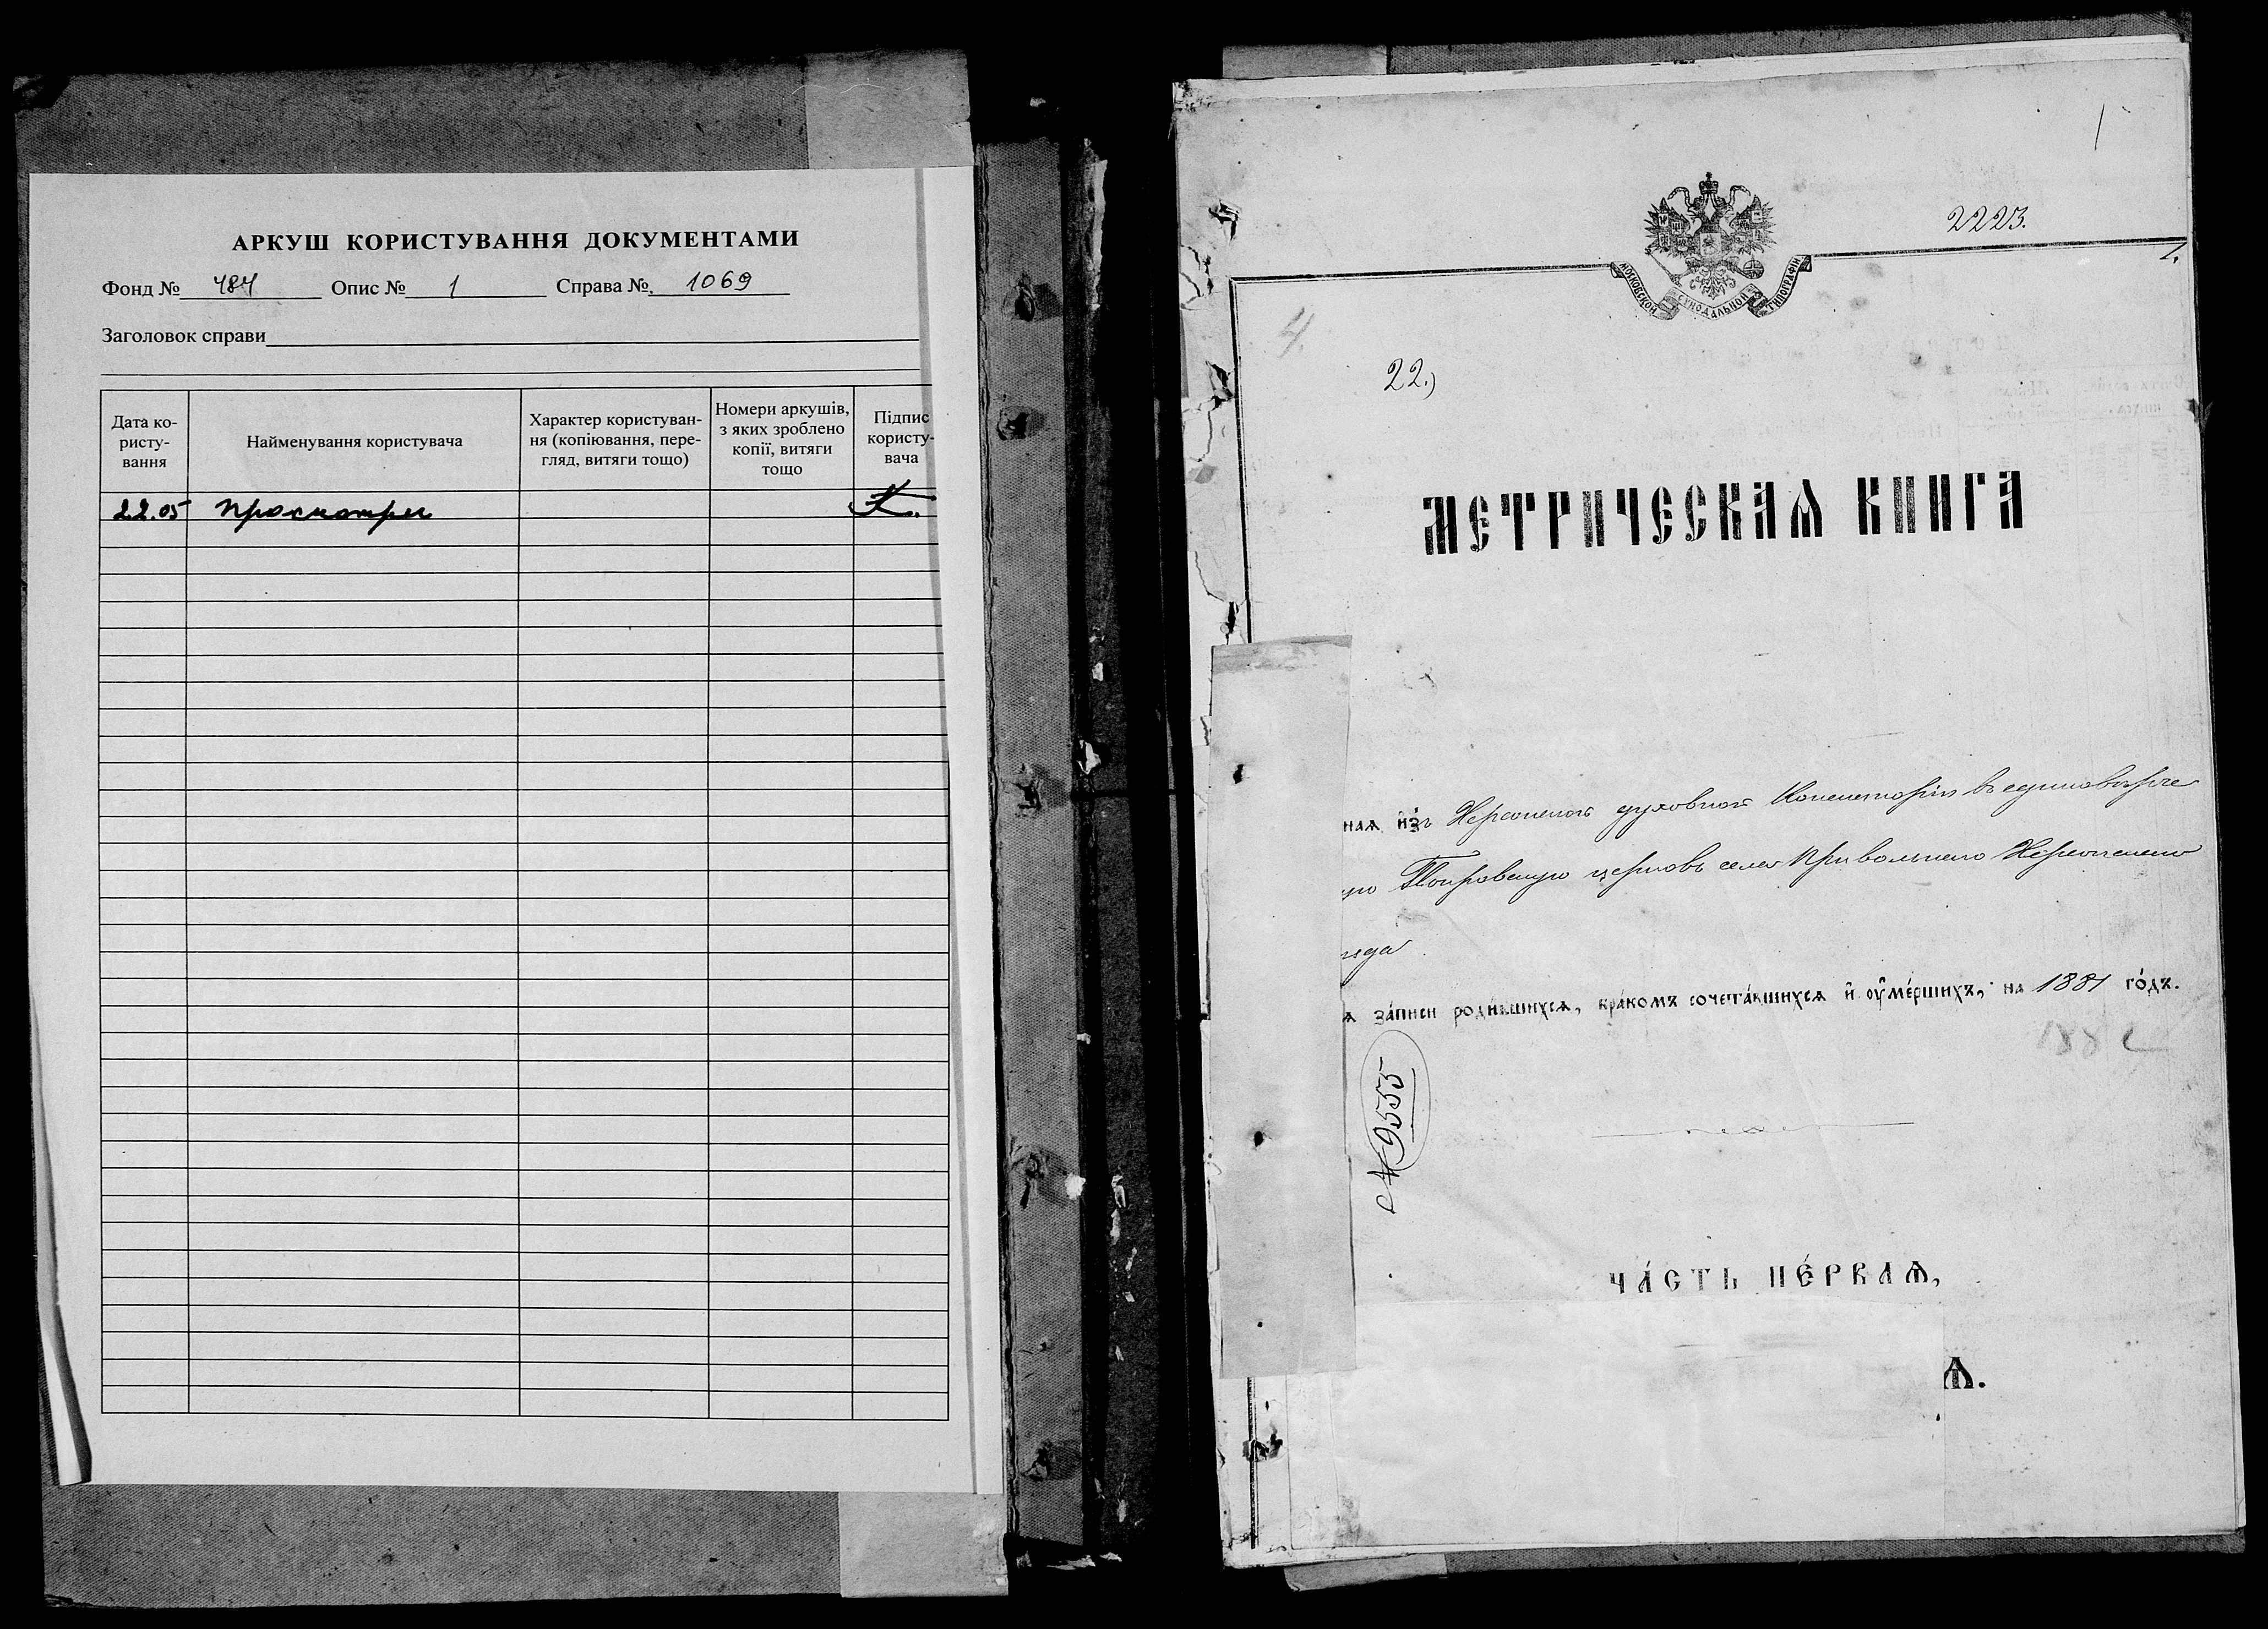 АРКУШ КОРИСТУВАННЯ ДОКУМЕНТАМИ
Фонд № 484 Опис № 1 Справа № 1069
Заголовок справи
Дата ко-
ристу-
вання
Найменування користувача
Характер користуван-
ня (копіювання, пере-
гляд, витяги тощо)
Номери аркушів,
з яких зроблено
копії, витяги
тощо
Підпис
користу-
вача
22.05 просмотры К.
1
2223.
1.
МОСКОВСКОЙ СѴНОДАЛЬНОЙ ТИПОГРАФІИ
4.
22.)
МЕТРИЧЕСКАѦ КНИГА
наѧ и҆зъ Херсонской духовной Консисторіи въ единовѣрче
ую Покровскую церковь села Привольнаго Херсонскаго
ѣзда
ѧ за́писи роди́вшихсѧ, бра́комъ сочета́вшихсѧ и҆ ᲂу҆ме́ршихъ, на 1881 го́дъ.
188
№ 9555
ЧА́СТЬ ПЕ́РВАѦ,
Ѧ.